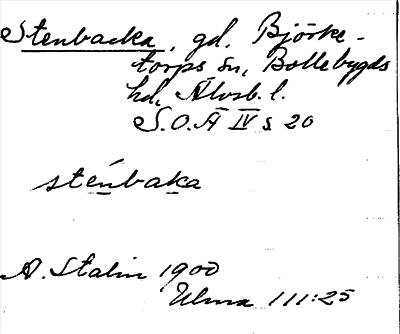 Stenbacka, gd, Björke-
torps sn, Bollebygds
hd, Älvsb. l.
S.O.Ä IV s 20
sténbaka
A. Stalin 1900
Ulma 111:25